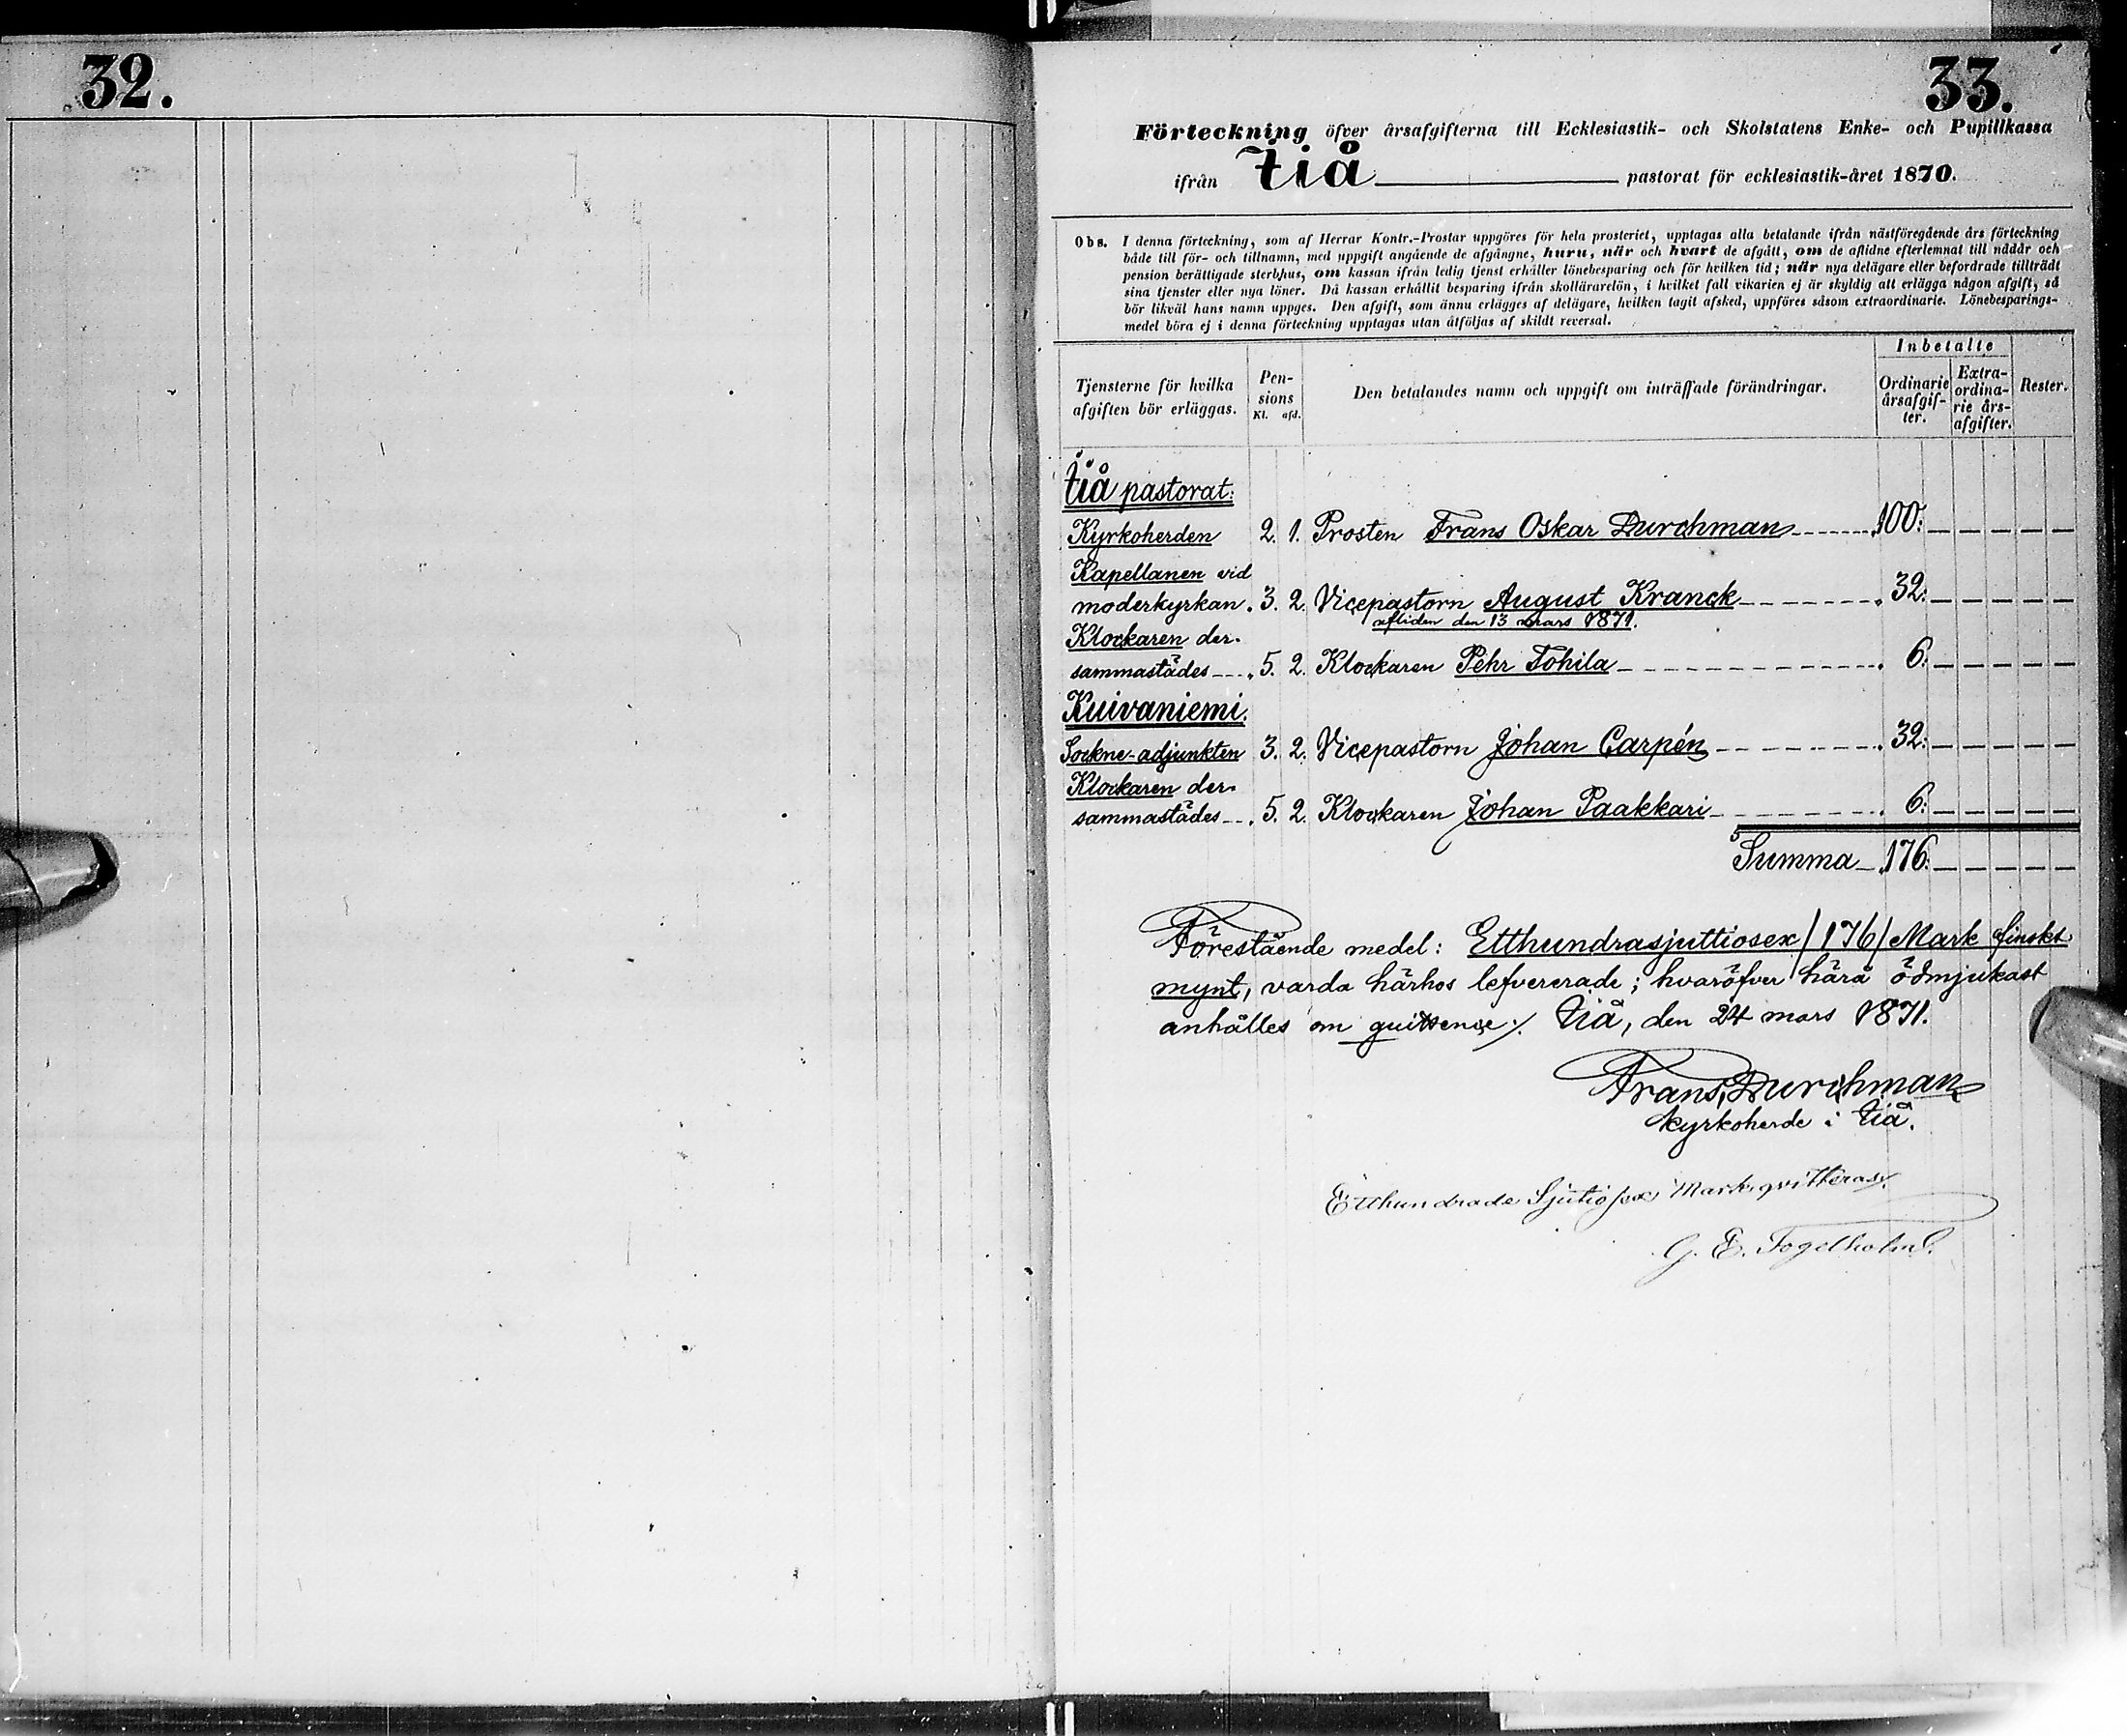 32.
33.
Förteckning öfver årsafgifterna till Ecklesiastik- och Skolstatens Enke- och Pupillkassa
ifrån Iiå pastorat för ecklesiastik-året 1870.
Obs. I denna förteckning, som af Herrar Kontr.-Prostar uppgöres för hela prosteriet, upptagas alla betalande ifrån nästföregående års förteckning
både till för- och tillnamn, med uppgift angående de afgångne, huru, när och hvart de afgått, om de aflidne efterlemnat till nådår och
pension berättigade sterbhus, om kassan ifrån ledig tjenst erhåller lönebesparing och för hvilken tid; när nya delägare eller befordrade tillträdt
sina tjenster eller nya löner. Då kassan erhållit besparing ifrån skollärarelön, i hvilket fall vikarien ej är skyldig att erlägga någon afgift, så
bör likväl hans namn uppges. Den afgift, som ännu erlägges af delägare, hvilken tagit afsked, uppföres såsom extraordinarie. Lönebesparings-
medel böra ej i denna förteckning upptagas utan åtföljas af skildt reversal.
Tjensterne för hvilka afgiften bör erläggas.
Pensions Kl. afd.
Den betalandes namn och uppgift om inträffade förändringar.
Inbetalte
Ordinarie årsafgifter.
Extraordinarie årsafgifter.
Rester.
Iiå pastorat:
Kyrkoherden 2. 1. Prosten Frans Oskar Durchman 100:
Kapellanen vid
moderkyrkan. 3. 2. Vicepastorn August Kranck 32:
afliden den 13 mars 1871.
Klockaren der-
sammastädes 5. 2. Klockaren Pehr Tohila 6:
Kuivaniemi.
Sockne-adjunkten 3. 2. Vicepastorn Johan Carpén 32:
Klockaren der-
sammastädes 5. 2. Klockaren Johan Paakkari 6:
Summa 176:
Förestående medel: Etthundrasjuttiosex /176/ Mark finskt
mynt, varda härhos lefvererade; hvaröfver härå ödmjukast
anhålles om quittence ./. Iiå, den 24 mars 1871.
Frans Durchman
kyrkoherde i Iiå.
Etthundrade Sjutiosex Mark qvitteras.
G. E. Fogelholm.